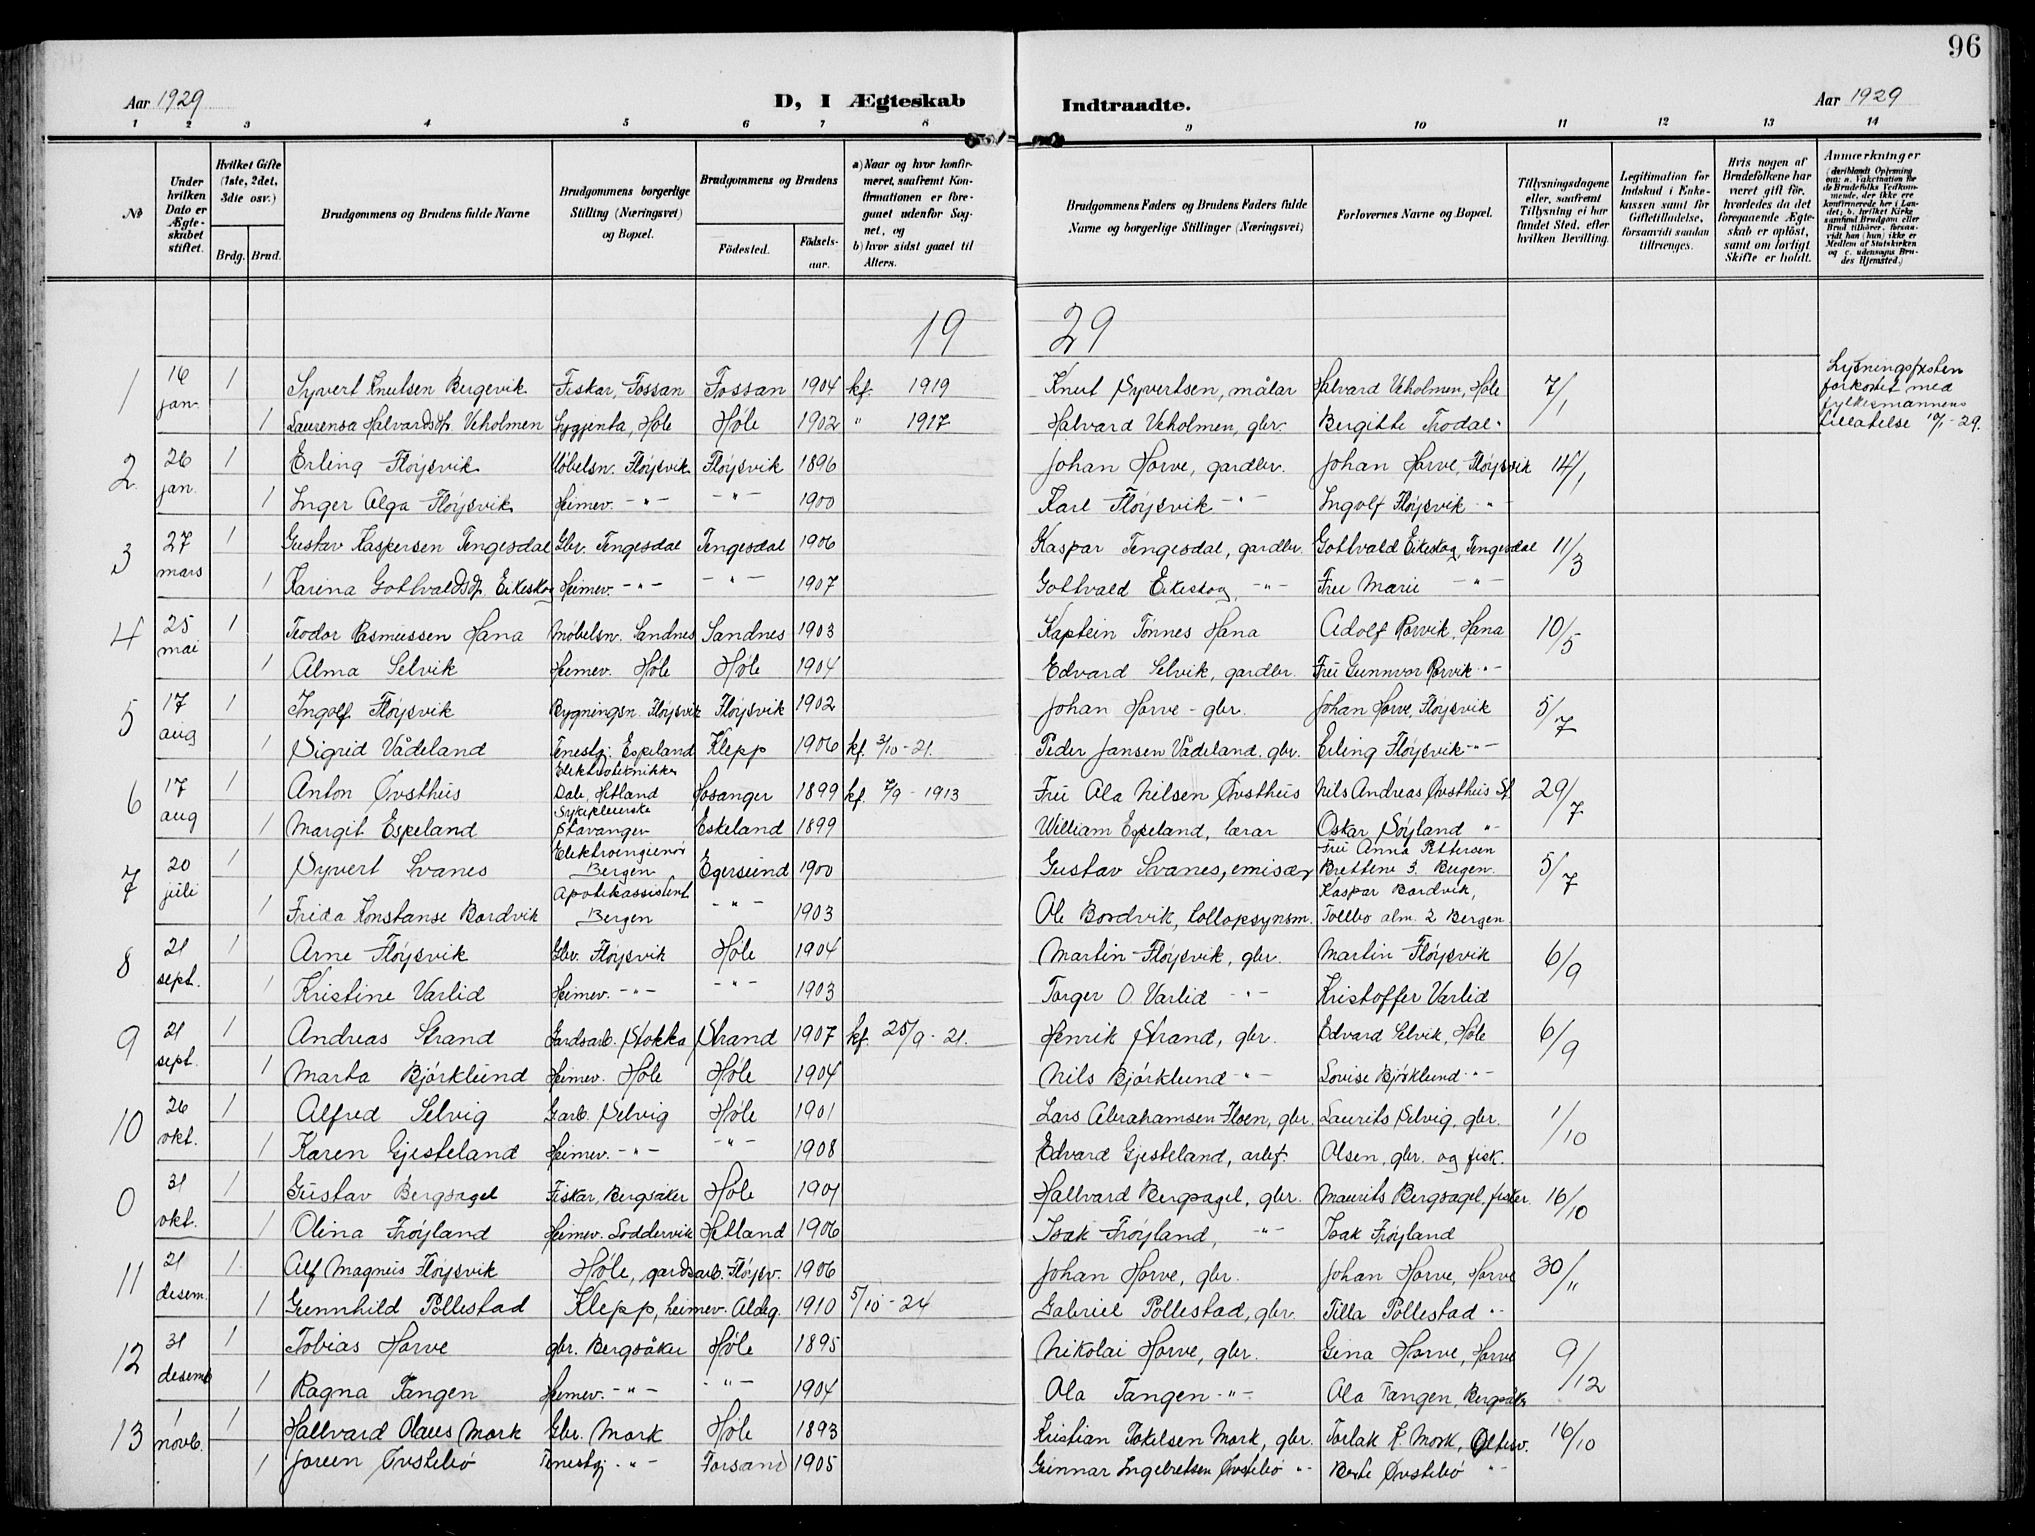 96
Aar 1929
D, I Ægteskab Indtraadte.
Aar 1929
1 2 3 4 5 6 7 8 9 10 11 12 13 14
№
Under hvilken Dato er Ægteskabet stiftet.
Hvilket Gifte (1ste, 2det, 3die osv.)
Brdg. Brud.
Brudgommens og Brudens fulde Navne
Brudgommens borgerlige Stilling (Næringsvei) og Bopæl.
Brudgommens og Brudens
Fødested.
Fødselsaar.
a) Naar og hvor konfirmeret, saafremt Konfirmationen er foregaaet udenfor Sognet, og
b) hvor sidst gaaet til Alters.
Brudgommens Faders og Brudens Faders fulde Navne og borgerlige Stillinger (Næringsvei)
Forlovernes Navne og Bopæl.
Tillysningsdagene eller, saafremt Tillysning ei har fundet Sted, efter hvilken Bevilling.
Legitimation for Indskud i Enkekassen samt for Giftetilladelse, forsaavidt saadan tiltrænges.
Hvis nogen af Brudefolkene har været gift før, hvorledes da det foregaaende Ægteskab er opløst, samt om lovligt Skifte er holdt.
Anmærkninger (deriblandt Oplysning om: a. Vakcination for de Brudefolks Vedkommende, der ikke ere konfirmerede her i Landet; b. hvilket Kirkesamfund Brudgom eller Brud tilhører, forsaavidt han (hun) ikke er Medlem af Statskirken og c. udensogns Brudes Hjemsted.)
19 29
1 16 jan. 1 Syvert Knutsen Bergevik Fiskar, Fossan Fossan 1904 kf. 1919 Knut Syvertsen, målar Halvard Veholmen, Høle 7/1 Lysningsfristen forkortet med fylkesmannens tillatelse 10/1 - 29.
1 Laurensa Halvardsd. Veholmen Høle Høle 1902 " 1917 Halvard Veholmen, gbr. Bergitte Trodal "
2 26 jan. 1 Erling Fløysvik Møbelsn. Fløysvik Fløysvik 1896 Johan Horve, gardbr. Johan Horve, Fløysvik 14/1
1 Inger Alga Fløysvik Heimev. -"- -"- 1900 Karl Fløysvik -"- Ingolf Fløysvik "-
3 27 mars 1 Gustav Kaspersen Tengesdal Gbr. Tengesdal Tengesdal 1906 Kaspar Tengesdal, gardbr. Gottvald Eikeskog, Tengesdal 11/3
1 Karina Gottvaldsd. Eikeskog Heimev. -"- -"- 1907 Gottvald Eikeskog, -"- Fru Marie -"-
4 25 mai 1 Teodor Rasmussen Hana Møbelsn. Sandnes Sandnes 1903 Kaptein Tønnes Hana Adolf Rovik, Hana 10/5
1 Alma Selvik Heimev. Høle Høle 1904 Edvard Selvik, gardbr. Frú Gunnvor Rovik "-
5 17 aug 1 Ingolf Fløysvik Bygningsn. Fløysvik Fløysvik 1902 Johan Horve - gbr. Johan Horve, Fløysvik 5/7
1 Sigrid Vådeland Tenestgj. Espeland Klepp 1906 kf. 3/10 - 21. Peder Jansen Vådeland, gbr. Erling Fløysvik -"-
6 17 aug 1 Anton Øvsthus Elektrotekniker Dale Hetland Hosanger 1899 kf. 7/9 - 1913 Frú Ola Nilsen Øvsthus Nils Andreas Øvsthus St. 29/7
1 Margit Espeland Sykepleierske Stavanger Eskeland 1899 William Espeland, lærar Oskar Søyland "-
7 20 juli 1 Syvert Svanes Elektroingieniør Bergen Egersund 1900 Gustav Svanes, emisær Frú Anna Pettersen Brettene 3. Bergen 5/7
1 Frida Konstanse Bordvik Apotekassistent Bergen -"- 1903 Ole Bordvik, tollopsynsm. Kaspar Bordvik, Tollbo alm. 2 Bergen
8 21 sept. 1 Arne Fløysvik Gbr. Fløysvik Høle 1904 Martin Fløysvik, gbr. Martin Fløysvik 6/9
1 Kristine Varlid Heimev. -"- -"- 1903 Torger O. Varlid -"- Kristoffer Varlid
9 21 sept. 1 Andreas Strand Gardsarb. Stokka Strand 1907 kf. 25/9 - 21. Henrik Strand, gbr. Edvard Selvik, Høle 6/9
1 Marta Bjørklund Heimev. Høle Høle 1904 Nils Bjørklund -"- Lovise Bjørklund -"-
10 26 okt. 1 Alfred Selvig Garb. Selvig Høle 1901 Lars Abrahamsen Floen, gbr. Laurits Selvig, gbr. 1/10
1 Karen Gjesteland Heimev. -"- -"- 1908 Edvard Gjesteland, arbf. Olsen, gbr. og fisk.
0 31 okt. 1 Gustav Bergsagel Fiskar, Bergsåker Høle 1901 Hallvard Bergsagel, gbr. Maurits Bergsagel, fisker 16/10
1 Olina Frøyland Heimev. Soddervik Hetland 1906 Isak Frøyland, -"- Isak Frøyland
11 21 desem. 1 Alf Magnus Fløysvik Høle, gardsarb. Fløysv. 1906 Johan Horve, gbr. Johan Horve, Horve 30/11
1 Gunnhild Pollestad Klepp, heimev. Aldeg. 1910 5/10 - 24 Gabriel Pollestad, gbr. Tilla Pollestad "-
12 31 desemb 1 Tobias Horve gbr. Bergsåker Høle 1895 Nikolai Horve, gbr. Gina Horve, Horve 9/12
1 Ragna Tangen Heimev. -"- -"- 1904 Ola Tangen -"- Ola Tangen, Bergsåker
13 1 novb. 1 Hallvard Olaus Mork Gbr. Mork Høle 1893 Kristian Tokelsen Mork, gbr. Torlak K. Mork, 16/10
1 Joren Øvstebø Tenestgj. -"- Forsand 1905 Gunnar Ingebretsen Øvstebø "- Berte Øvstebø "-